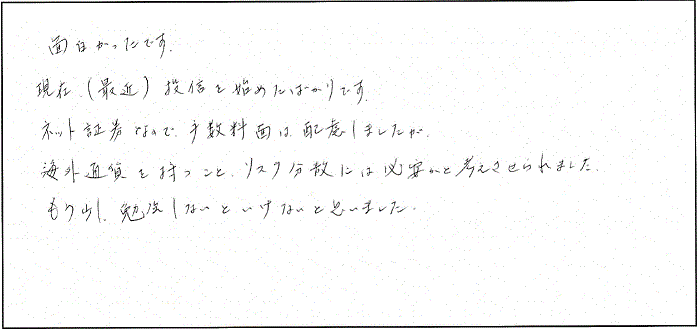 面白かったです.
現在.(最近)投信を始めたばかりです.
ネット証券なので.手数料面は.配慮しましたが.
海外通貨を持つこと.リスク分散には必要かと考えさせられました.
もう少し.勉強しないといけないと思いました.